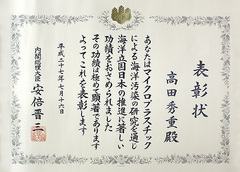 表彰状
高田秀重殿
あなたはマイクロプラスチック
による海洋汚染の研究を通じ
海洋立国日本の推進に著しい
功績をおさめられました
その功績は極めて顕著であります
よってこれを表彰します
平成二十七年七月十六日
内閣総理大臣 安倍晋三